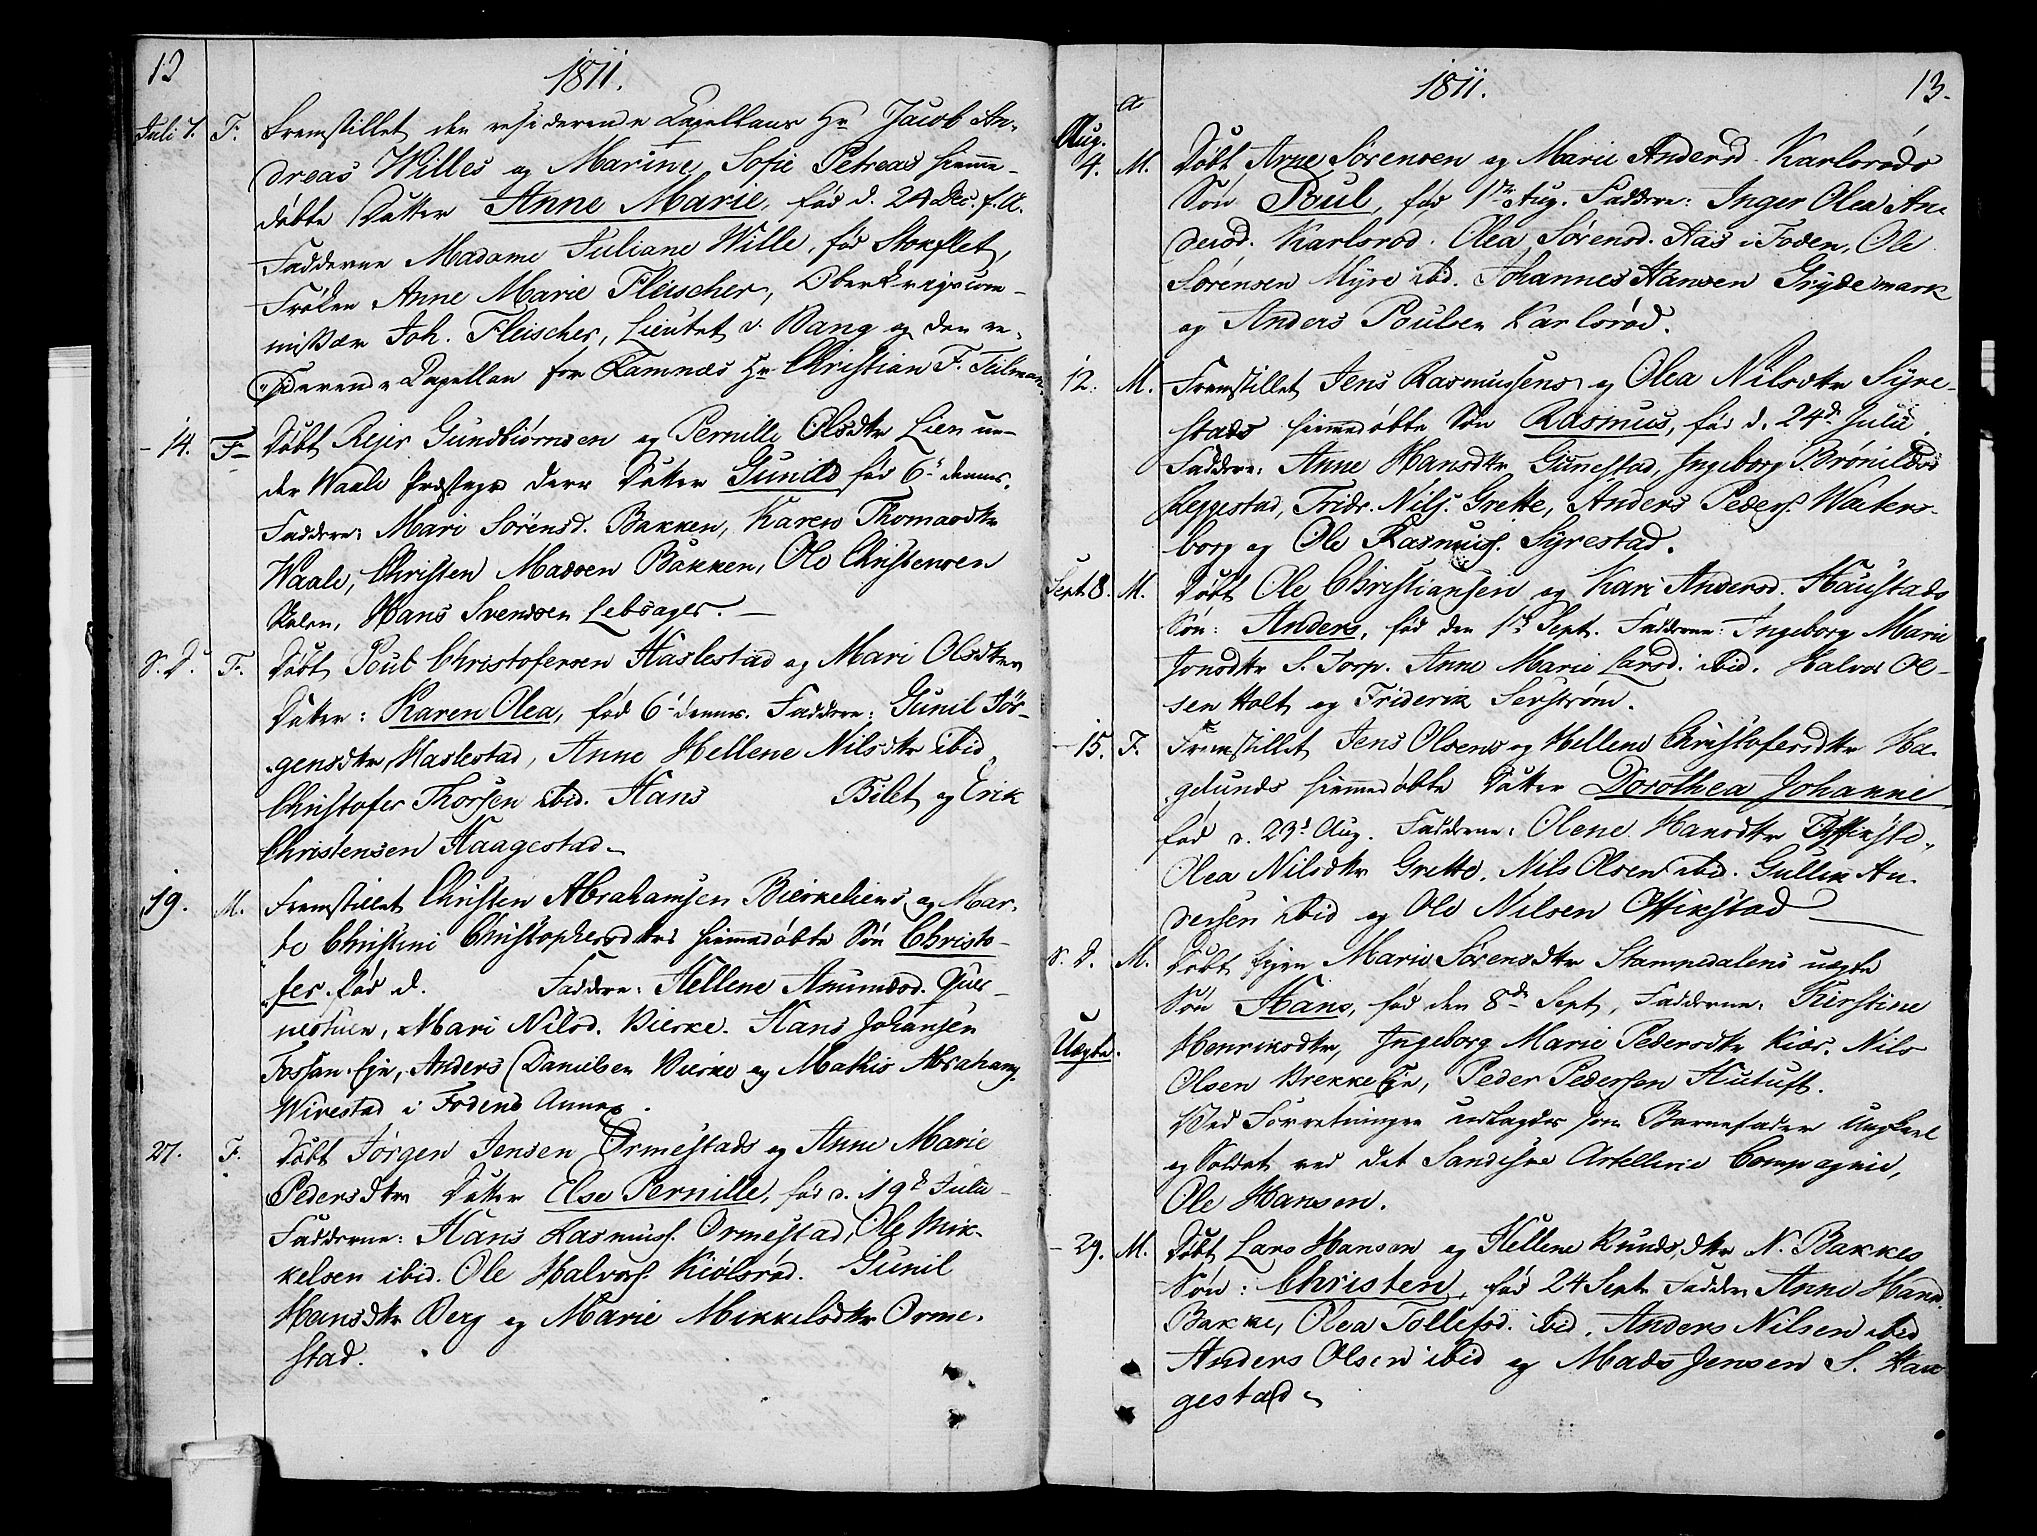 12
1811.
Juli 7. F. Fremstillet den residerende Capellans Hr Jacob An-
dreas Willes og Marine Sofie Petreas hjemme-
døbte Datter Anne Marie, fød d. 24 Dec. f. A.
Fadderne Madame Juliane Wille, fød Stokflet,
Frøken Anne Marie Fleischer, Oberkrigscom-
missær Joh. Fleischer, Lieutet v. Bang og den re-
siderende Capellan for Ramnæs Hr Christian F. Tilman
- 14. F. Døbt Rejer Gundbiørnsen og Pernille Olsdtr Lien un-
der Waale Præstegr deres Datter Gunild fød 6te dennes.
Faddere: Mari Sörensd. Bakken, Karen Thomasdtr
Waale, Christen Madsen Bakken, Ole Christensen
Hans Svendsen Lebsager. -
S. D. F. Døbt Poul Christofersen Haslestad og Mari Olsdtrs
Datter: Karen Olea, fød 6te dennes. Faddere: Gunil Jör-
gensdtr Haslestad, Anne Hellene Nilsdtr ibid
Christofer Thorsen ibid. Hans Bilet og Erik
Christensen Haagestad.
19. M. Fremstillet Christen Abrahamsen Bierkeeiens og Mar-
te Christine Christophersdtrs hjemmedøbte Søn Christo-
fer. fød d. Faddere: Hellene Amundsd. Quer-
nestuen, Mari Nilsd. Bierke. Hans Johansen
Fossan Eje, Anders Danielsen Bierke og Mathis Abrahams.
Wirestad i Fodens Annex.
27. F. Døbt Jörgen Jensen Ormestads og Anne Marie
Pedersdtrs Datter Else Pernille, fød d. 19de Julii
Fadderne: Hans Rasmuss. Ormestad, Ole Mik-
kelsen ibid. Ole Halvors. Kiölsröd. Gunil
Hansdtr Berg og Marie Mikkelsdtr Orme-
stad.
1811.
13.
a
Aug.
4. M. Døbt Arne Sörensen og Marie Andersd. Karlsröds
Søn Poul, fød 1ste Aug. Faddere: Inger Olea An-
dersd. Karlsröd. Olea Sörensd. Aas i Foden, Ole
Sörensen Myre ibd. Johannes Hansen Grydemark
og Anders Poulsen Karlsröd.
12. M. Fremstillet Jens Rasmussens og Olea Nilsdtr Syre-
stads hjemmedøbte Søn Rasmus, fød d. 24de Julii.
Faddere: Anne Hansdtr Gunestad, Ingeborg Brönildsd
Leggestad, Fridr. Nils. Grette, Anders Peders. Waters-
borg og Ole Rasmuss. Syrestad.
Sept 8. M. Døbt Ole Christiansen og Kari Andersd. Haustads
Søn: Anders, fød den 1ste Sept. Fadderne: Ingeborg Marie
Jonsdtr S. Torp. Anne Marie Larsd. ibid. Halvor Ol-
sen Holt og Friderik Serström.
- 15. F. Fremstillet Jens Olsens og Hellene Christofersdtr Ha-
gelunds hjemmedøbte Datter Dorothea Johanne
fød d. 23de Aug. Fadderne: Olene Hansdtr Offiksta.
Olea Nilsdtr Grette, Nils Olsen ibid. Gullik An-
dersen ibid og Ole Nilsen Offikstad
S. D. M. Døbt Pigen Marie Sörensdtr Stampedalens uægte
Søn Hans, fød den 8de Sept, Fadderne: Kirstine
Uægte. Henriksdtr, Ingeborg Marie Pedersdtr Kiær. Nils
Olsen Brekke Eje, Peder Pedersen Hutuft.
Ved Forretningen udlagdes som Barnefader Ungkarl
og Soldat ved det Sandiske Artellerie Compagnie,
Ole Hansen.
- 29. M. Døbt Lars Hansen og Hellene Knudsdtr N. Bakkes
Søn: Christen, fød 24 Septr Faddre Anne Hansd.
Bakke, Olea Tollefsd. ibid, Anders Nilsen ibid
Anders Olsen ibid og Mads Jensen S. Hau
gestad.